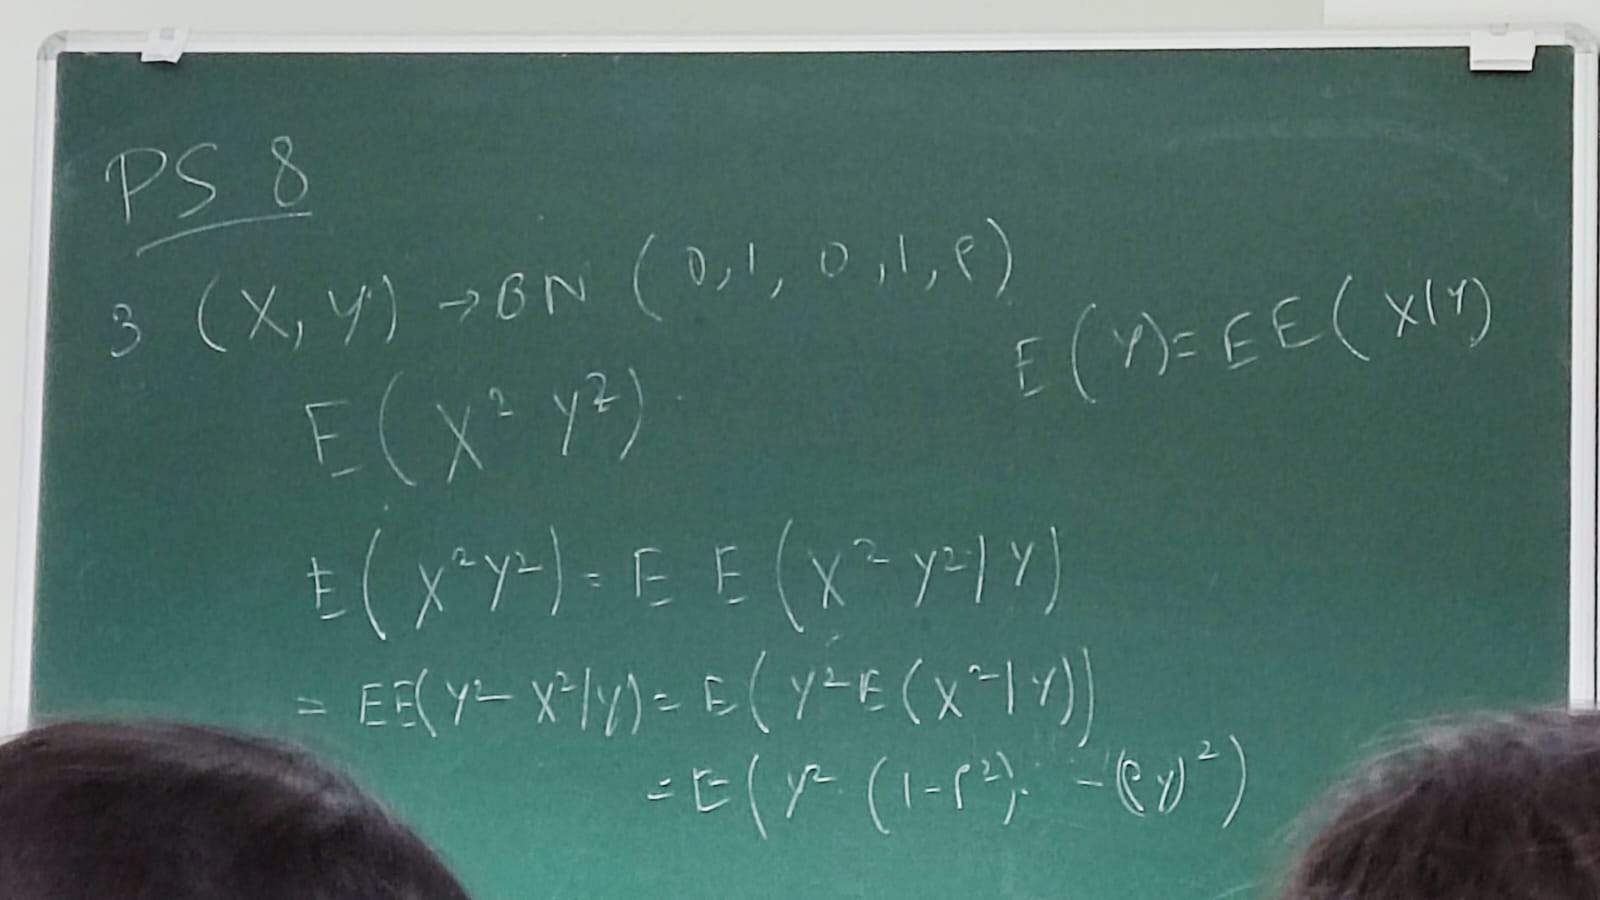 PS 8
3 (X, Y) → BN (0, 1, 0, 1, ρ)
E(Y) = E E(X|Y)
E(X² Y²)
E(X²Y²) = E E(X² Y²|Y)
= EE(Y² X²|Y) = E(Y² E(X²|Y))
= E(Y² (1-ρ²) - (ρY)²)